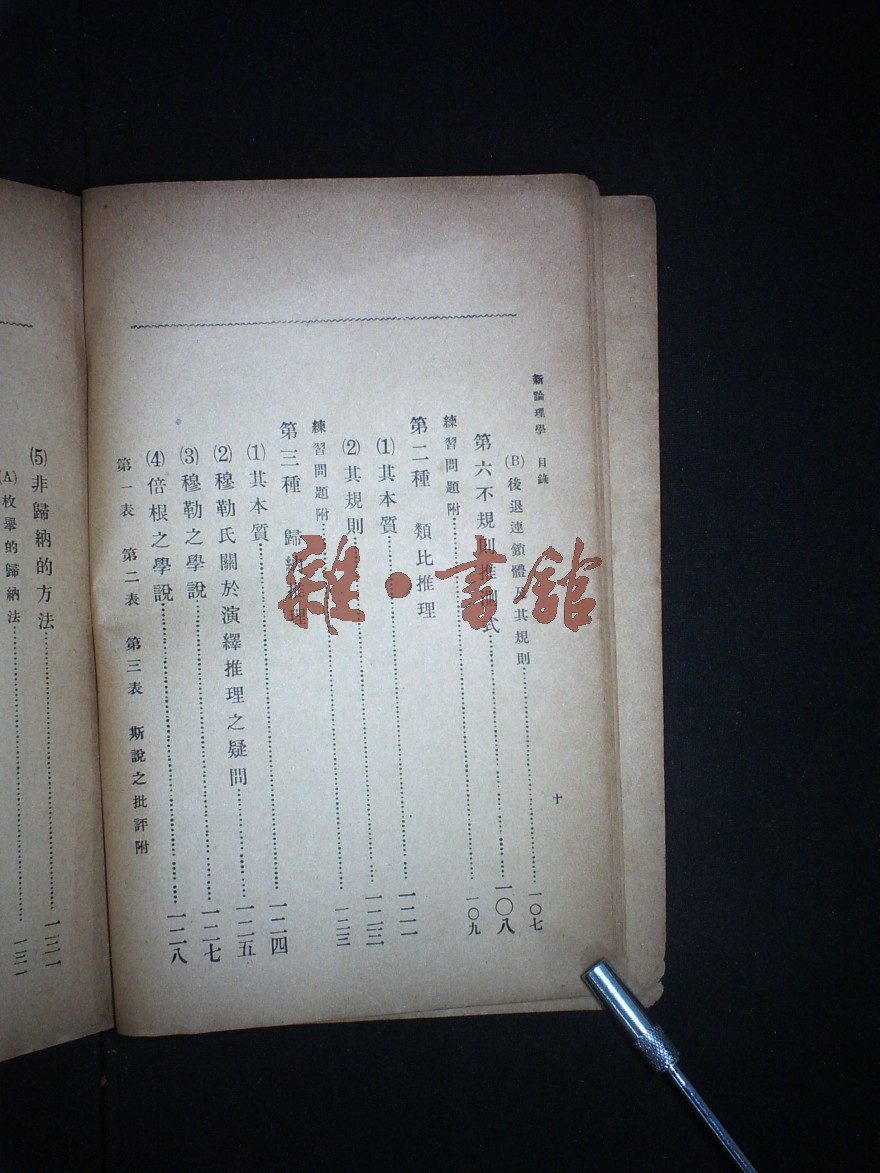 新論理學 目錄
十
(B)後退連鎖體及其規則…一〇七
第六不規則推測式…一〇八
練習問題附…一〇九
第二種 類比推理
(1)其本質…一二一
(2)其規則…一二三
練習問題附…一二三
第三種 歸納推理
(1)其本質…一二四
(2)穆勒氏關於演繹推理之疑問…一二五
(3)穆勒之學說…一二七
(4)倍根之學說…一二八
第一表 第二表 第三表 斯說之批評附
(5)非歸納的方法…一三一
(A)枚舉的歸納法…一三一
雜·書館